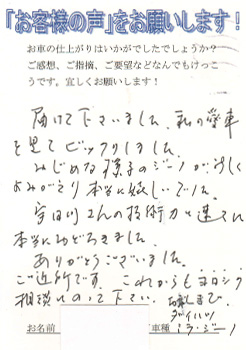 「お客様の声」をお願いします！
お車の仕上がりはいかがでしたでしょうか？
ご感想、ご指摘、ご要望などなんでもけっこ
うです。宜しくお願いします！
届けて下さいました、私の愛車
を見てビックリしました。
みじめな様子のジーノが、美しく
よみがえり本当に嬉しいでした。
さんの技術力と速さに
本当におどろきました。
ありがとうございました。
ご近所です、これからもヨロシク
相談にのって下さい。
ダイハツ
お名前
車種
ミラ・ジーノ